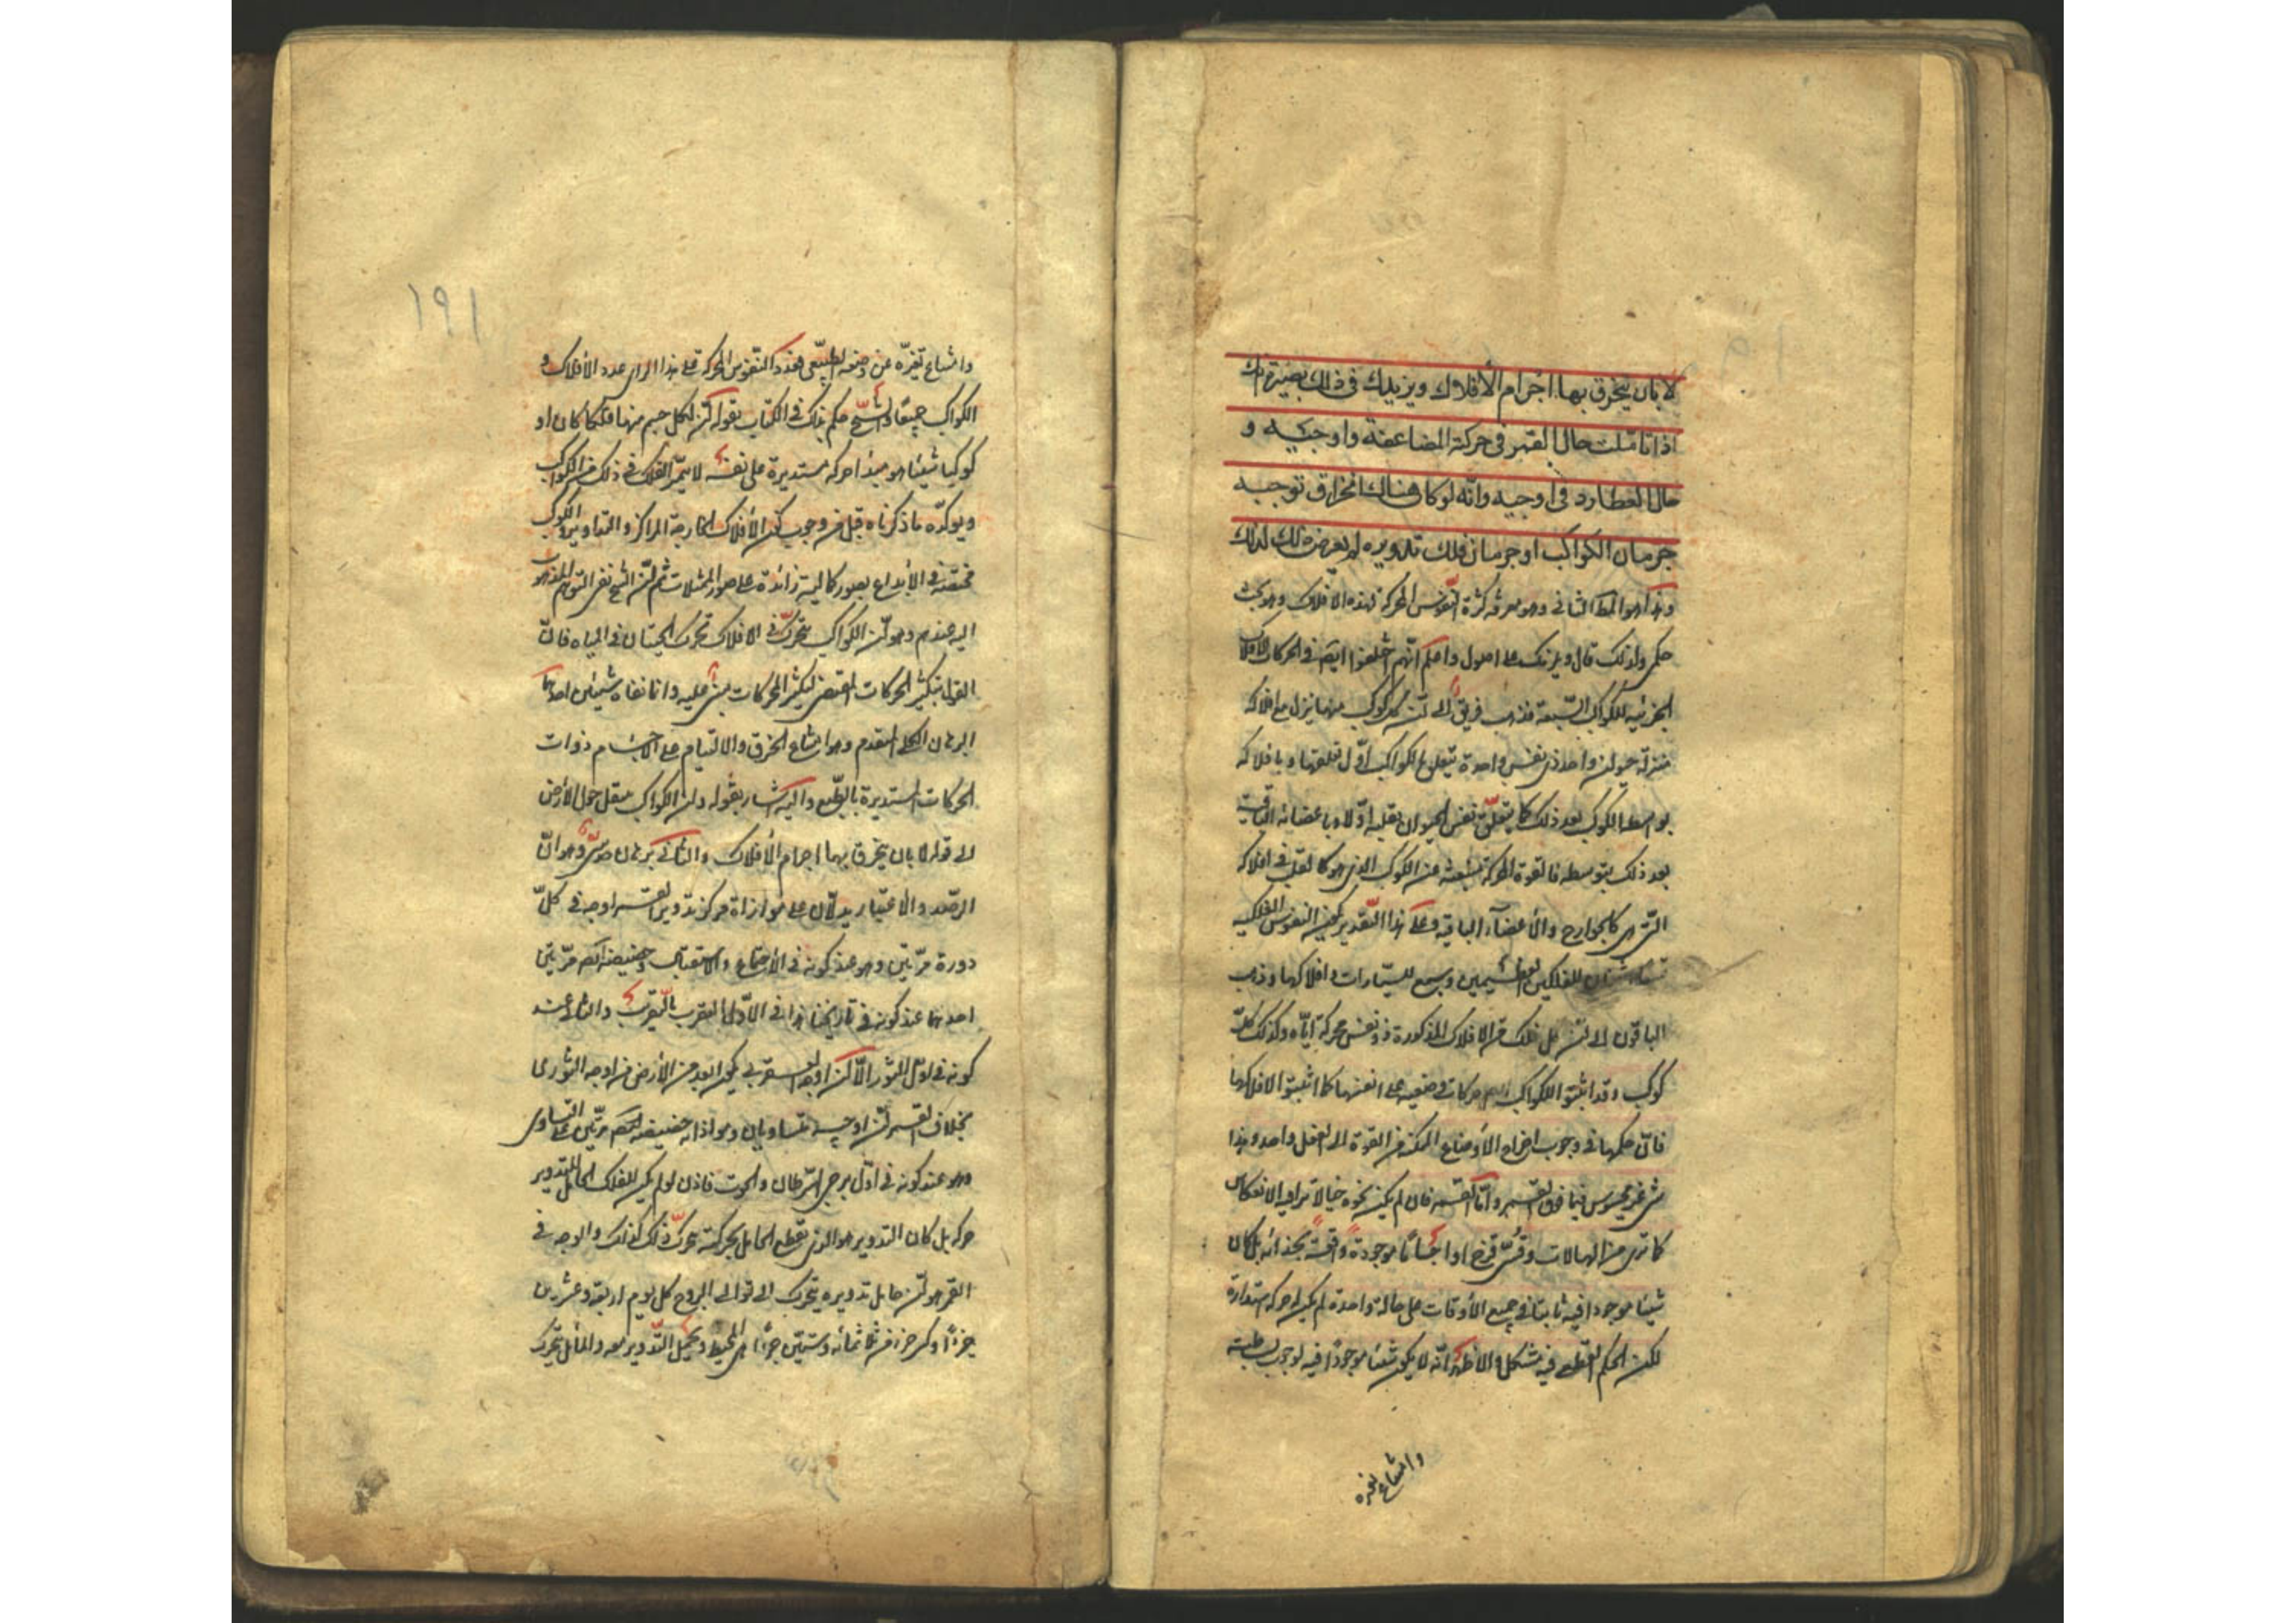 لا بان ينخرق بها اجرام الأفلاك ويزيدك فى ذلك بصيرة انك
اذا تامّلت حال القمر فى حركته المضاعفة واوجيه و
حال العطارد فى اوجيه وانّه لو كان هناك انخراق توجبه
جرمان الكواكب او جرمان فلك تدويره لم يعرض ذلك كذلك
وهذا هو المط الثانى وهو معرفة كثرة النّفوس المحركة لهذه الافلاك وهو بحث
حكمى ولذلك قال ويلزمك على اصول واعلم انّهم اختلفوا ايضا فى الحركات الافلاك
الجزئيه للكواكب السّبعة فذهب فريق الى انّ كل كوكب منها ينزل مع افلاكه
منزلة حيوان واحد ذى نفس واحدة تتعلق بالكواكب اوّل تعلقها وبافلاكه
بواسطة الكوكب بعد ذلك كما يتعلّق نفس الحيوان بقلبه اوّلا وباعضائه الباقية
بعد ذلك بتوسطه فالقوة المحركة منبعثه عن الكوكب الذى هو كالقلب فى افلاكه
التى هى كالجوارح والأعضاء الباقيه وعلى هذا التّقدير يكون النفوس الفلكيه
تسعا اثنتان للفلكين العظيمين وسبع للسيّارات وافلاكها وذهب
الباقون الى انّ كل فلك من الافلاك المذكورة ذو نفس محركة ايّاه وكذلك كلّ
كوكب وقد اثبتوا للكواكب ايضا حركات وضعيه على انفسها كما اثبتوا لافلاكها
فانّ حكمها فى وجوب اخراج الأوضاع الممكنة من القوة الى الفعل واحد وهذا
شى غير محسوس فيما فوق القمر وامّا القمر فان لم يكن محوه خيالا تراه فيه الانعكاس
كما ترى من الهالات وقوس قزح او اجسامًا موجودة واقعة بحذائه بل كان
شيئا موجودا فيه ثابتا فى جميع الأوقات على حالة واحدة لم يكن له حركة استدارة
لكن الحكم القطعى فيه مشكل والاظهر انّه لا يكون شيئا موجودًا فيه لوجوب بساطته
وامتناع تغيره
١٩١
وامتناع تغيرّه عن وضعه الطبيعى فعدد النّفوس المحركة على هذا الراى عدد الأفلاك و
الكواكب جميعًا والشيخ حكم بذلك فى الكتاب بقوله انّ لكل جسم منها فلكا كان او
كوكبا شيئا هو مبدا حركة مستديرة على نفسه لا يتميّز الفلك فى ذلك من الكواكب
ويوكّده ما ذكرناه قبل من وجوب كون الأفلاك الخارجة المراكز والتداوير والكواكب
مختصّة فى الأبداع بصور كماليه زائدة على صور الممثلات ثم انّ الشيخ نفى التوهم المذهوب
اليه عندهم وهو انّ الكواكب يتحرّك فى الافلاك تحرك الحيتان فى المياه فانّ
القول بتكثير الحركات المقتضى لتكثير المحركات مبنى عليه وانما نفاه بشيئين احدهما
البرهان الكلى المتقدم وهو امتناع الخرق والالتيام على الاجسام ذوات
الحركات المستديرة بالطّبع واليه اشار بقوله وان الكواكب ينتقل حول الأرض
الى قوله لا بان ينخرق بهما اجرام الأفلاك والثانى برهان حدسى وهو انّ
الرصد والأعتبار يدلّان على موازاة مركز تدوير القمر اوجه فى كلّ
دورة مرّتين وهو عند كونه فى الأجتماع والاستقبال وحضيضه ايضا مرّتين
احدهما عند كونه فى تاريخنا هذا فى الاوّل العقرب بالتّقريب والثانى عند
كونه فى اول الثور الّا ان اوجه العقربى يكون ابعد من الأرض من اوجه الثورى
بخلاف القمر فانّ اوجيه متساويان وموازاته حضيضه ايضا مرّتين على التساوى
وهو عند كونه فى اوّل برجى السّرطان والحوت فاذن لو لم يكن للفلك الحامل للتدوير
حركة بل كان التدوير هو الذى يقطع الحامل بحركته لم يكن ذلك كذلك والوجه فى
القمر هو انّ حامل تدويره يتحرك الى توالى البروج كل يوم اربعة وعشرين
جزءًا وكسر جزء من ثلاثمائه وستّين جزءًا هى المحيط ويحمل التّدوير معه والمائل يتحرك